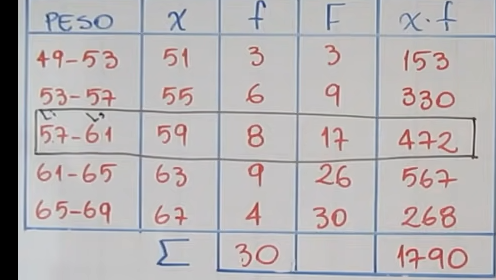 PESO x f F x·f
49-53 51 3 3 153
53-57 55 6 9 330
Li Ls
57-61 59 8 17 472
61-65 63 9 26 567
65-69 67 4 30 268
Σ 30 1790